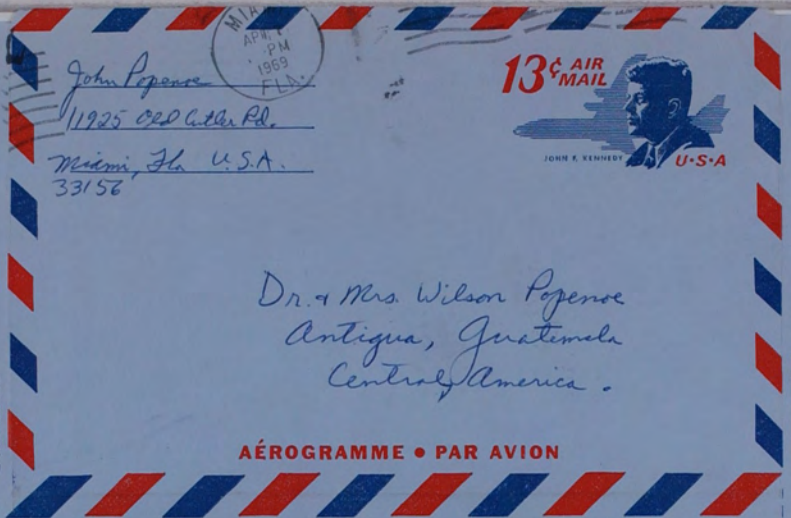 MIA
APR
PM
1969
FLA.
John Popenoe
11925 Old Cutler Rd.
Miami, Fla U.S.A.
33156
13¢ AIR
MAIL
JOHN F. KENNEDY
U·S·A
Dr. & Mrs. Wilson Popenoe
Antigua, Guatemala
Central America.
AÉROGRAMME • PAR AVION